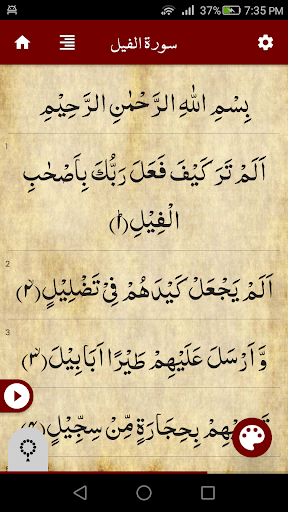 57% 7:35 PM
سورة الفيل
بِسْمِ اللهِ الرَّحْمٰنِ الرَّحِيْمِ
1
اَلَمْ تَرَ كَيْفَ فَعَلَ رَبُّكَ بِاَصْحٰبِ
الْفِيْلِ(۱)
2
اَلَمْ يَجْعَلْ كَيْدَهُمْ فِيْ تَضْلِيْلٍ(۲)
3
وَّ اَرْسَلَ عَلَيْهِمْ طَيْرًا اَبَابِيْلَ(۳)
بِحِجَارَةٍ مِّنْ سِجِّيْلٍ(۴)